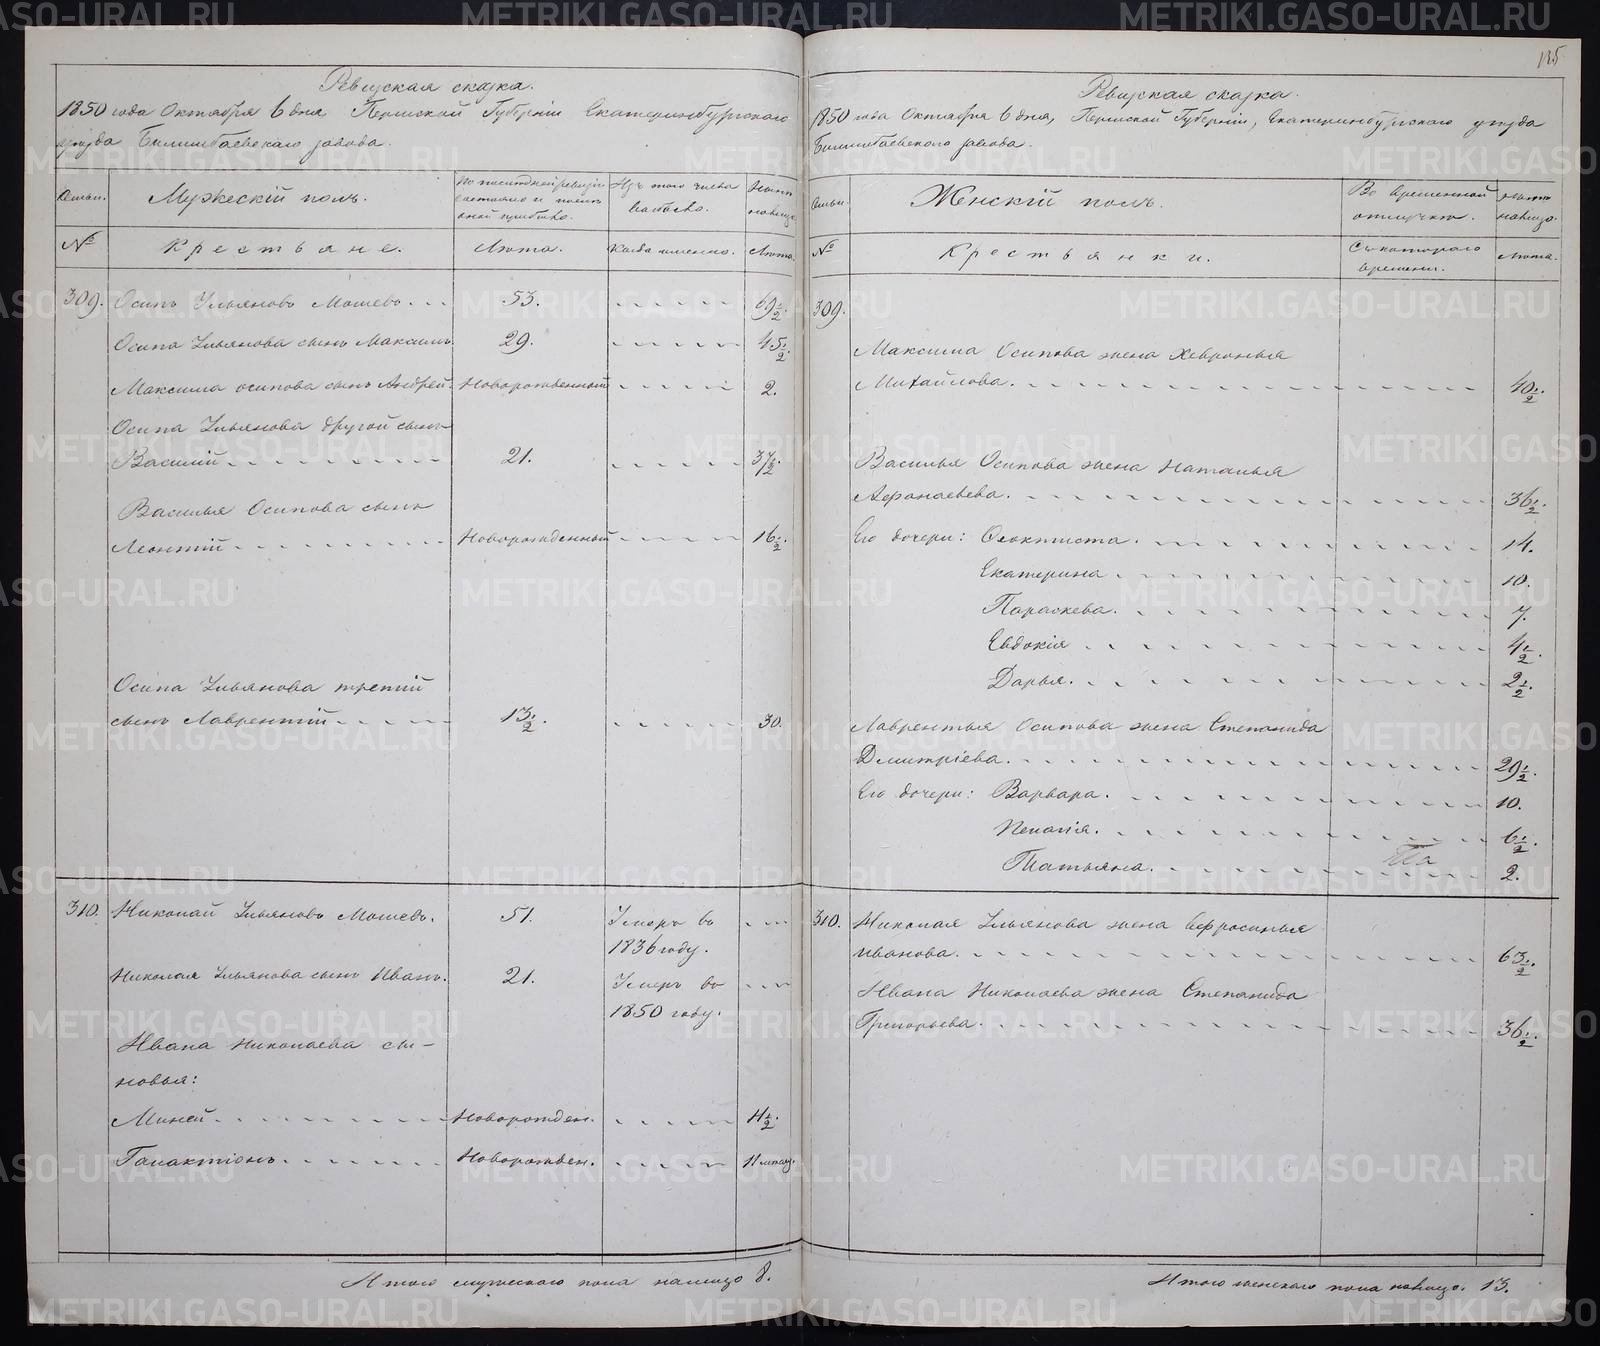 Ревизская сказка.
1850 года Октября 6 дня, Пермской Губерніи Екатеринбургскаго
уезда Билимбаевскаго завода.
Семьи. Мужескій полъ. По последней ревизіи состояло и после оной прибыло. Изъ того числа выбыло. Ныне на лицо.
№ Крестьяне. Лета. Когда именно. Лета.
309. Осипъ Ильяновъ Мошевъ 53. 69 1/2.
Осипа Ильянова сынъ Максимъ 29. 45 1/2.
Максима осипова сынъ Андрей. Новорожденный 2.
Осипа Ильянова другой сынъ
Василій 21. 37 1/2.
Василья Осипова сынъ
Леонтій Новорожденный 16 1/2.
Осипа Ильянова третій
сынъ Лаврентій 13 1/2. 30.
310. Николай Ильяновъ Мошевъ. 51. Умеръ въ
1836 году.
Николая Ильянова сынъ Иванъ. 21. Умеръ въ
1850 году.
Ивана Николаева сы-
новья:
Миней Новорожден. 4 1/2.
Галактіонъ Новорожден.
Итого мужескаго пола налицо 8.
135
Ревизская сказка.
1850 года Октября 6 дня, Пермской Губерніи, Екатеринбургскаго уезда
Билимбаевскаго завода.
Семьи. Женскій полъ. Во временной отлучке. Ныне налицо.
№ Крестьянки. Съ котораго времени. Лета.
309.
Максима Осипова жена Хевронья
Михайлова. 40 1/2.
Василья Осипова жена Наталья
Афонасьева. 36 1/2.
Его дочери: Феоктиста. 14.
Екатерина 10.
Параскева. 7.
Евдокія 4 1/2.
Дарья. 2 1/2.
Лаврентья Осипова жена Степанида
Дмитріева. 29 1/2.
Его дочери: Варвара. 10.
Пелагія. 6 1/2.
Татьяна. 2.
310. Николая Ильянова жена Ефросинья
иванова. 63 1/2.
Ивана Николаева жена Степанида
Григорьева. 36 1/2.
Итого женскаго пола налицо. 13.
METRIKI.GASO-URAL.RU